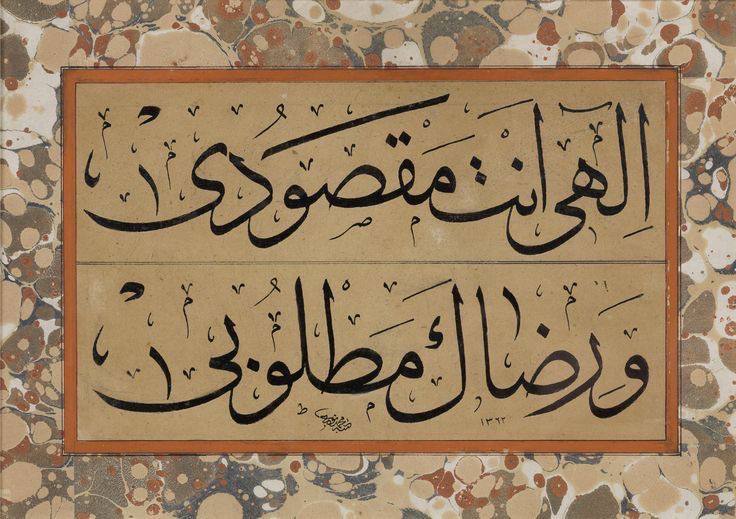 اِلٰهى اَنْتَ مَقْصُودُى
وَرِضَاكَ مَطْلُوبُى
١٣٦٢